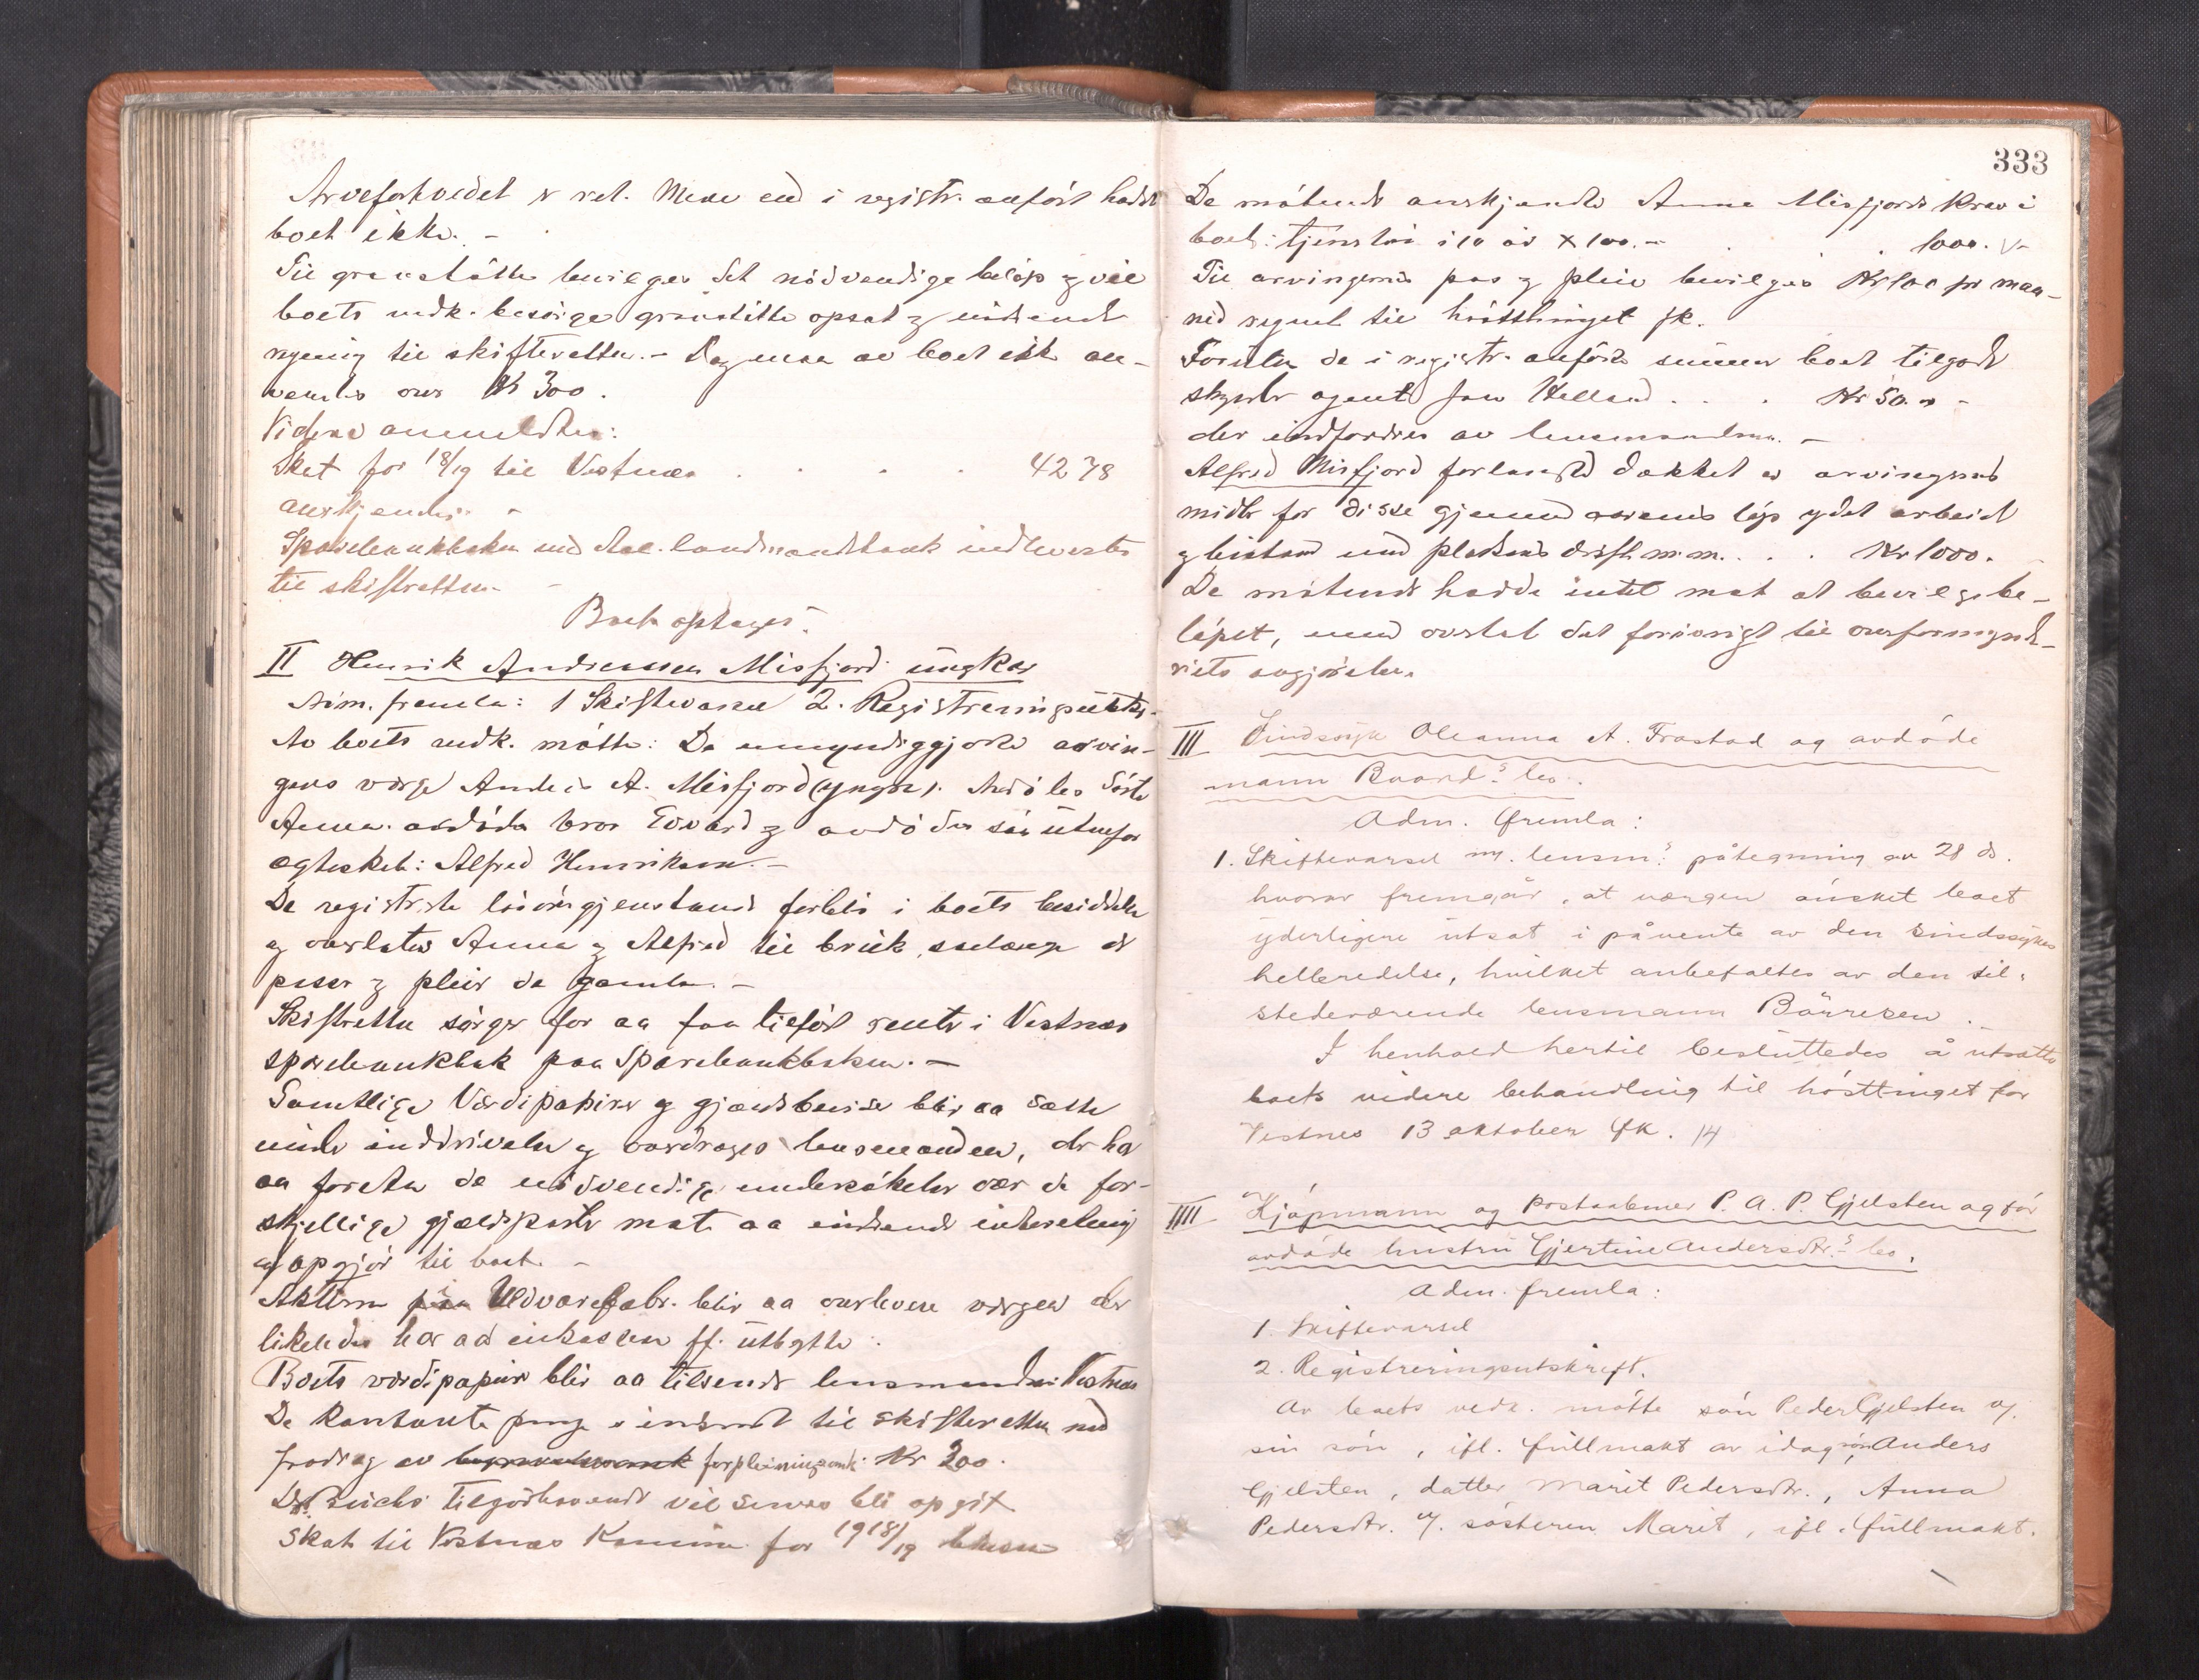 Arveforholdet er ret. Mere end i registr. anført hadde
boet ikke. –
Til gravstøtte bevilges det nødvendige beløp og vil
boets vedk. besørge gravstøtte opsat og indsendt
regning til skifteretten. – Dog maa av boet ikke an-
vendes over Kr 300.
Videre anmeldtes:
Skat for 18/19 til Vestnes . . . . 42 78
anerkjendes. –
Sparebankboken med Aal. landmandsbank indleveres
til skifteretten. –
Boet optages.
II Henrik Andreassen Misfjord ungkar
Adm. fremla: 1 Skiftevarsel 2. Registreringsutskr.
Av boets vedk. møtte: De umyndiggjorte arvin-
gers værge Anders A. Misfjord (yngre). Avdødes søster
Anna. avdødes bror Edvard og avdødes søn utenfor
egteskab: Alfred Henriksen. –
De registrerte løsøregjenstande forblir i boets besiddelse
og overlates Anna og Alfred til bruk, saalænge de
passer og pleier de gamle. –
Skifteretten sørger for aa faa tilført renter i Vestnes
sparebankbok paa Sparebankboken. –
Samtlige Værdipapirer og gjældsbeviser blir aa sætte
under inddrivelse og overdrages lensmanden, der har
aa foreta de nødvendige undersøkelser over de for-
skjellige gjældsposter mot aa indsende indberetning
og opgjør til boet. –
Aktierne paa Uldvarefabr. blir aa overlevere værgen der
likeledes har aa inkassere ff. utbytte.
Boets værdipapirer blir aa tilsende lensmanden i Vestnes
De kontante penge er indsendt til skifteretten med
fradrag av forpleiningsomk. Kr 200.
Dr. Buchs Tilgodehavende vil senere bli opgit
Skat til Vestnes Kommune for 1918/19
333
De møtende anerkjendte Anna Misfjords krav i
boet: tjenerløn i 10 år x 100.– . . 1000. –
Til arvingernes pas og pleie bevilges Kr 100 pr maa-
ned regnet til høsttinget fk.
Foruten de i registr. anførte summer boet tilgode
skylder agent Jon Helland . . . Kr 50.–
der indfordres av lensmanden. –
Alfred Misfjord forlangte dækket av arvingernes
midler for disse gjennem aarenes løp ydet arbeid
og bistand med pladsens drift m.m. . . . Kr 1000.
De møtende hadde intet mot at bevilge be-
løpet, men overlot det forøvrigt til overformynde-
riets avgjørelse.
III Sindssyk Oleanna A. Frostad og avdøde
mann Baards bo.
Adm. fremla:
1. Skiftevarsel m. lensm.s påtegning av 28 ds.
hvorav fremgår, at værgen ønsket boet
yderligere utsat i påvente av den sindssykes
helbredelse, hvilket anbefaltes av den til-
stedeværende lensmann Børresen.
I henhold hertil besluttedes å utsætte
boets videre behandling til høsttinget for
Vestnes 13 oktober fk. 14
IIII Kjøpmann og postaabner P. A. P. Gjelsten og før
avdøde hustru Gjertine Andersdtr.s bo.
Adm. fremla:
1. Skiftevarsel
2. Registreringsutskrift.
Av boets vedk. møtte søn Peder Gjelsten og
sin søn, ifl. fullmakt av idag, søn Anders
Gjelsten, datter Marit Pedersdtr., Anna
Pedersdtr. og søsteren Marit, ifl. fullmakt.